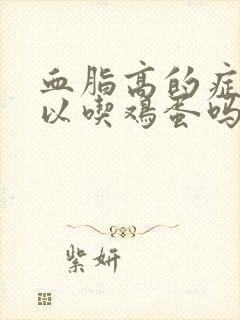 血脂高的症
以喫鸡蛋吗
紫妍